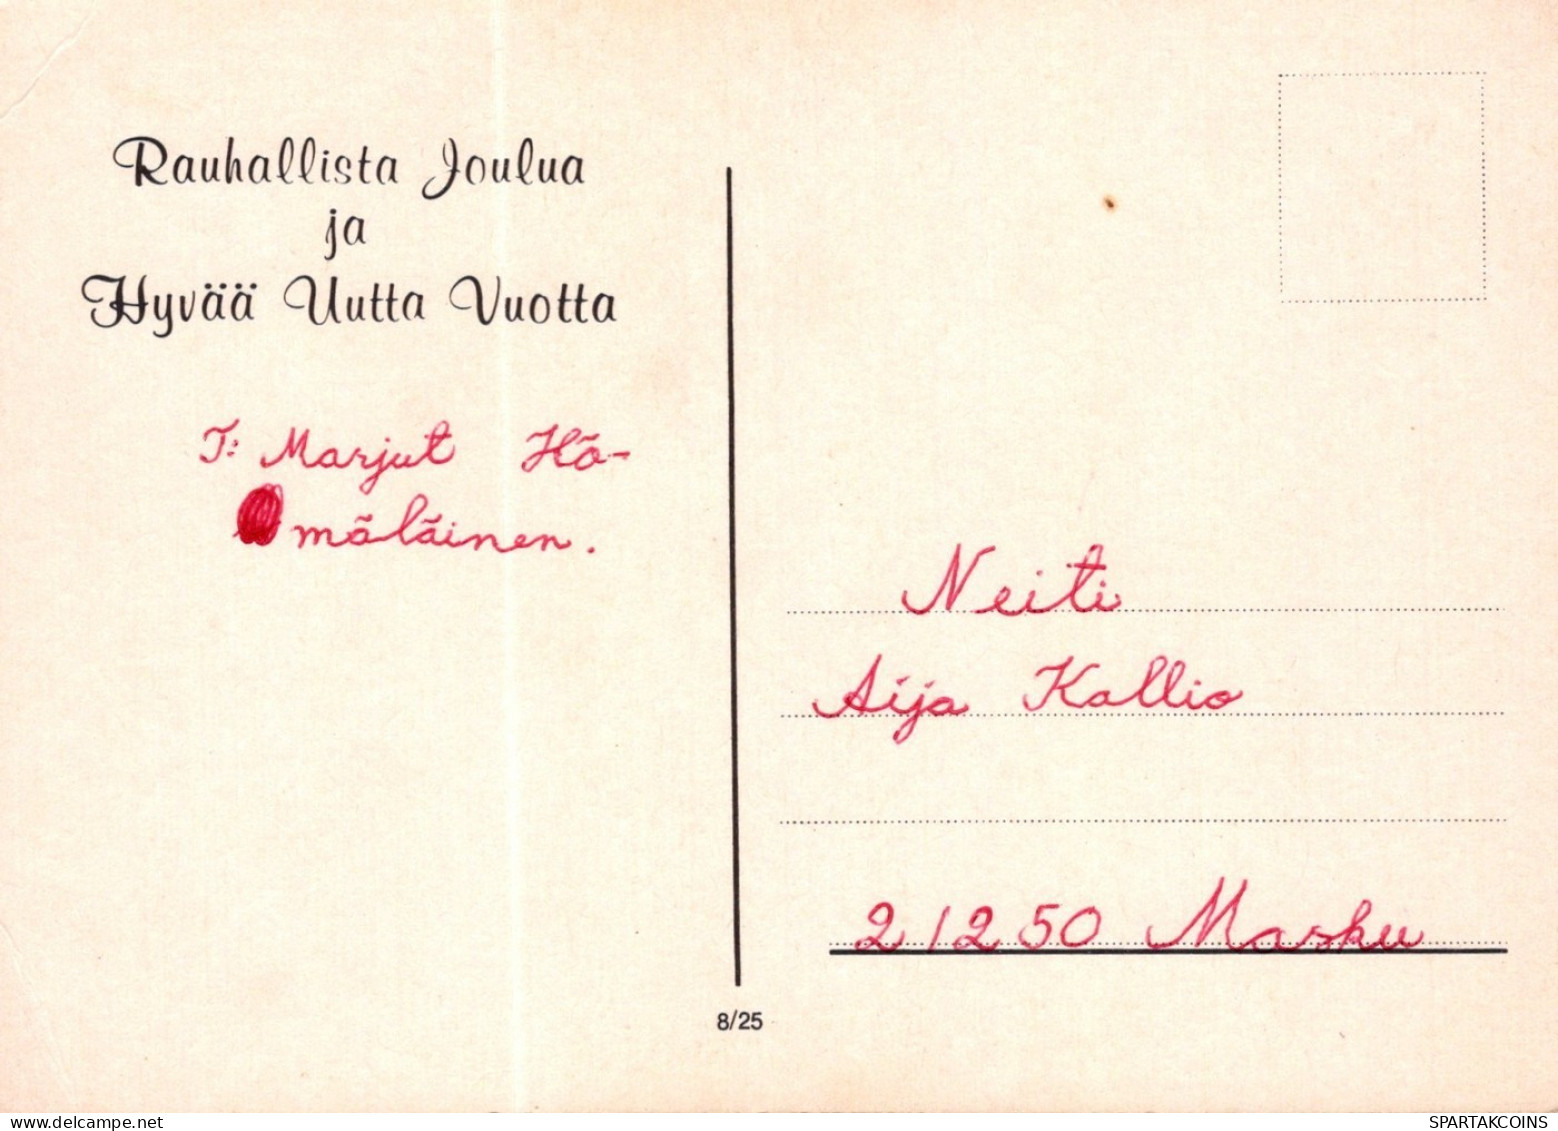 Rauhallista Joulua
ja
Hyvää Uutta Vuotta
T: Marjut Hä-
mäläinen.
Neiti
Aija Kallio
21250 Masku
8/25
www.delcampe.net
SPARTAKCOINS